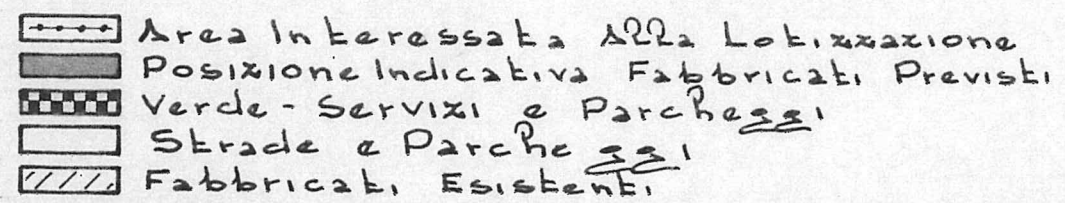 Area Interessata Alla Lotizzazione
Posizione Indicativa Fabbricati Previsti
Verde - Servizi e Parcheggi
Strade e Parcheggi
Fabbricati Esistenti